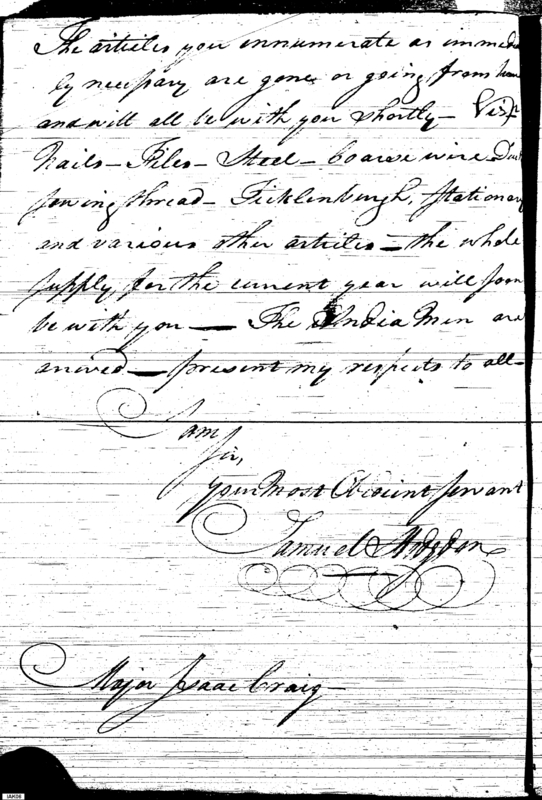 The articles you ennumerate as immedia
ly necessary are gone or going from here
and will all be with you shortly — Viz.
Nails — Files — Steel — coarse wire
sewing thread — Ticklenburgh, Stationary
and various other articles — the whole
supply for the current year will soon
be with you — The India Men are
arrived — present my respects to all —
I am
Sir,
your Most Obedient Servant
Samuel Hodgdon
Major Isaac Craig —